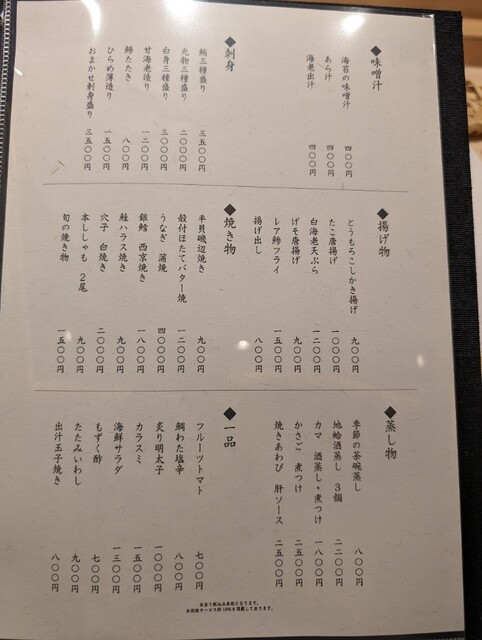 ◆味噌汁
海苔の味噌汁 四〇〇円
あら汁 四〇〇円
海老出汁 四〇〇円
◆刺身
鮪三種盛り 三五〇〇円
光物三種盛り 二〇〇〇円
白身三種盛り 三〇〇〇円
甘海老造り 一二〇〇円
鯵たたき 八〇〇円
ひらめ薄造り 一五〇〇円
おまかせ刺身盛り 三五〇〇円
◆揚げ物
とうもろこしかき揚げ 九〇〇円
たこ唐揚げ 一〇〇〇円
白海老天ぷら 一二〇〇円
げそ唐揚げ 九〇〇円
レア鯵フライ 一五〇〇円
揚げ出し 八〇〇円
◆焼き物
平貝磯辺焼き 九〇〇円
殻付ほたてバター焼 一二〇〇円
うなぎ 蒲焼 四〇〇〇円
銀鱈 西京焼き 一八〇〇円
鮭ハラス焼き 九〇〇円
穴子 白焼き 二〇〇〇円
本ししゃも 2尾 九〇〇円
旬の焼き物 一五〇〇円
◆蒸し物
季節の茶碗蒸し 八〇〇円
地蛤酒蒸し 3個 二二〇〇円
カマ 酒蒸し・煮つけ 一八〇〇円
かさご 煮つけ 二五〇〇円
焼きあわび 肝ソース 二五〇〇円
◆一品
フルーツトマト 七〇〇円
鯛わた塩辛 八〇〇円
炙り明太子 一〇〇〇円
カラスミ 一五〇〇円
海鮮サラダ 一三〇〇円
もずく酢 七〇〇円
たたみいわし 九〇〇円
出汁玉子焼き 八〇〇円
※全て税込み表記となります。
※別途サービス料10%を頂戴しております。